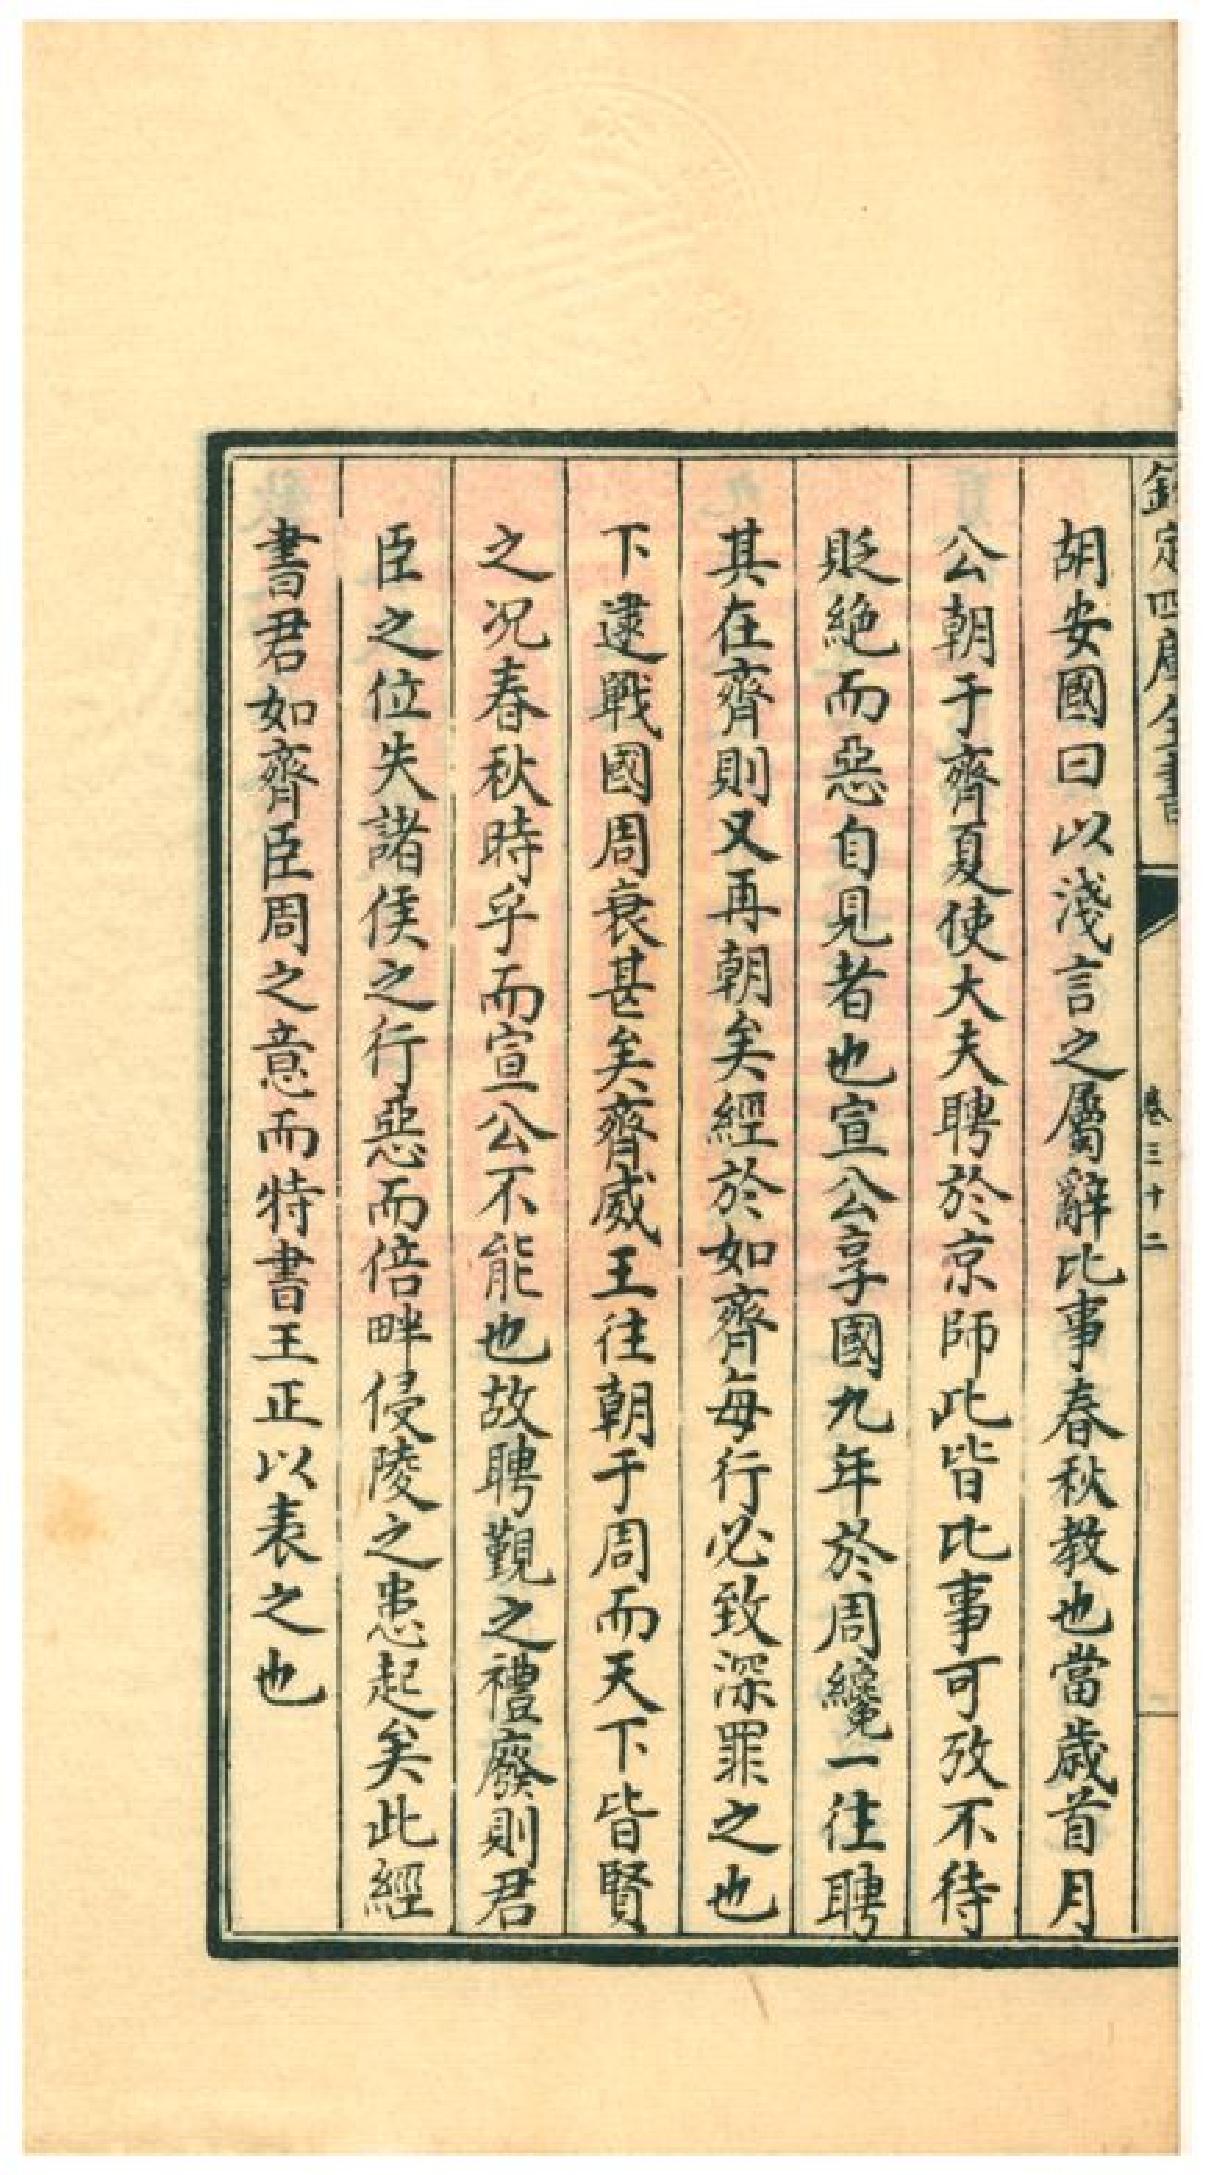 欽定四庫全書
卷三十二
胡安國曰以淺言之屬辭比事春秋教也當歲首月
公朝于齊夏使大夫聘於京師此皆比事可攷不待
貶絶而惡自見者也宣公享國九年於周纔一往聘
其在齊則又再朝矣經於如齊每行必致深罪之也
下逮戰國周衰甚矣齊威王往朝于周而天下皆賢
之况春秋時乎而宣公不能也故聘覲之禮廢則君
臣之位失諸侯之行惡而倍畔侵陵之患起矣此經
書君如齊臣周之意而特書王正以表之也